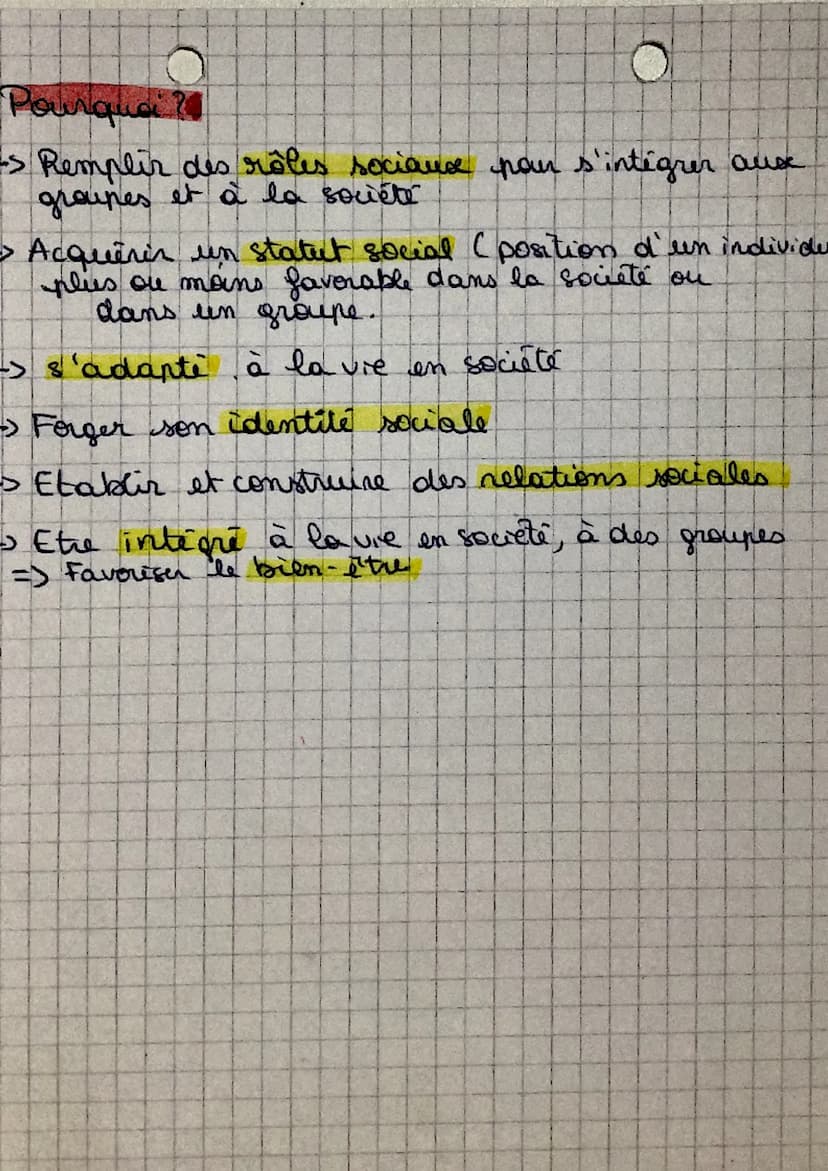 Pourquoi ?
-> Remplir des rôles sociaux pour s'intégrer aux
groupes et à la société
-> Acquérir un statut social ( position d'un individu
plus ou moins favorable dans la société ou
dans un groupe.
-> s'adapté à la vie en société
-> Forger son identité sociale
-> Etablir et construire des relations sociales
-> Etre intégré à la vie en société, à des groupes
=> Favoriser le bien-être